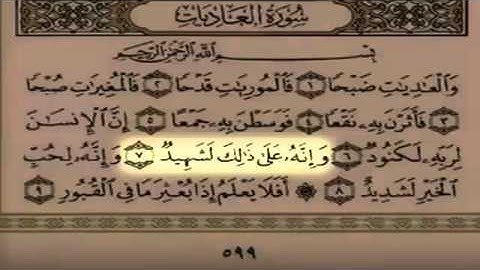 سُورَةُ العَادِيَاتِ
بِسْمِ اللَّهِ الرَّحْمَٰنِ الرَّحِيمِ
وَٱلْعَٰدِيَٰتِ ضَبْحًا ١ فَٱلْمُورِيَٰتِ قَدْحًا ٢ فَٱلْمُغِيرَٰتِ صُبْحًا
٣ فَأَثَرْنَ بِهِۦ نَقْعًا ٤ فَوَسَطْنَ بِهِۦ جَمْعًا ٥ إِنَّ ٱلْإِنسَٰنَ
لِرَبِّهِۦ لَكَنُودٌ ٦ وَإِنَّهُۥ عَلَىٰ ذَٰلِكَ لَشَهِيدٌ ٧ وَإِنَّهُۥ لِحُبِّ
ٱلْخَيْرِ لَشَدِيدٌ ٨ ۞ أَفَلَا يَعْلَمُ إِذَا بُعْثِرَ مَا فِى ٱلْقُبُورِ ٩
٥٩٩